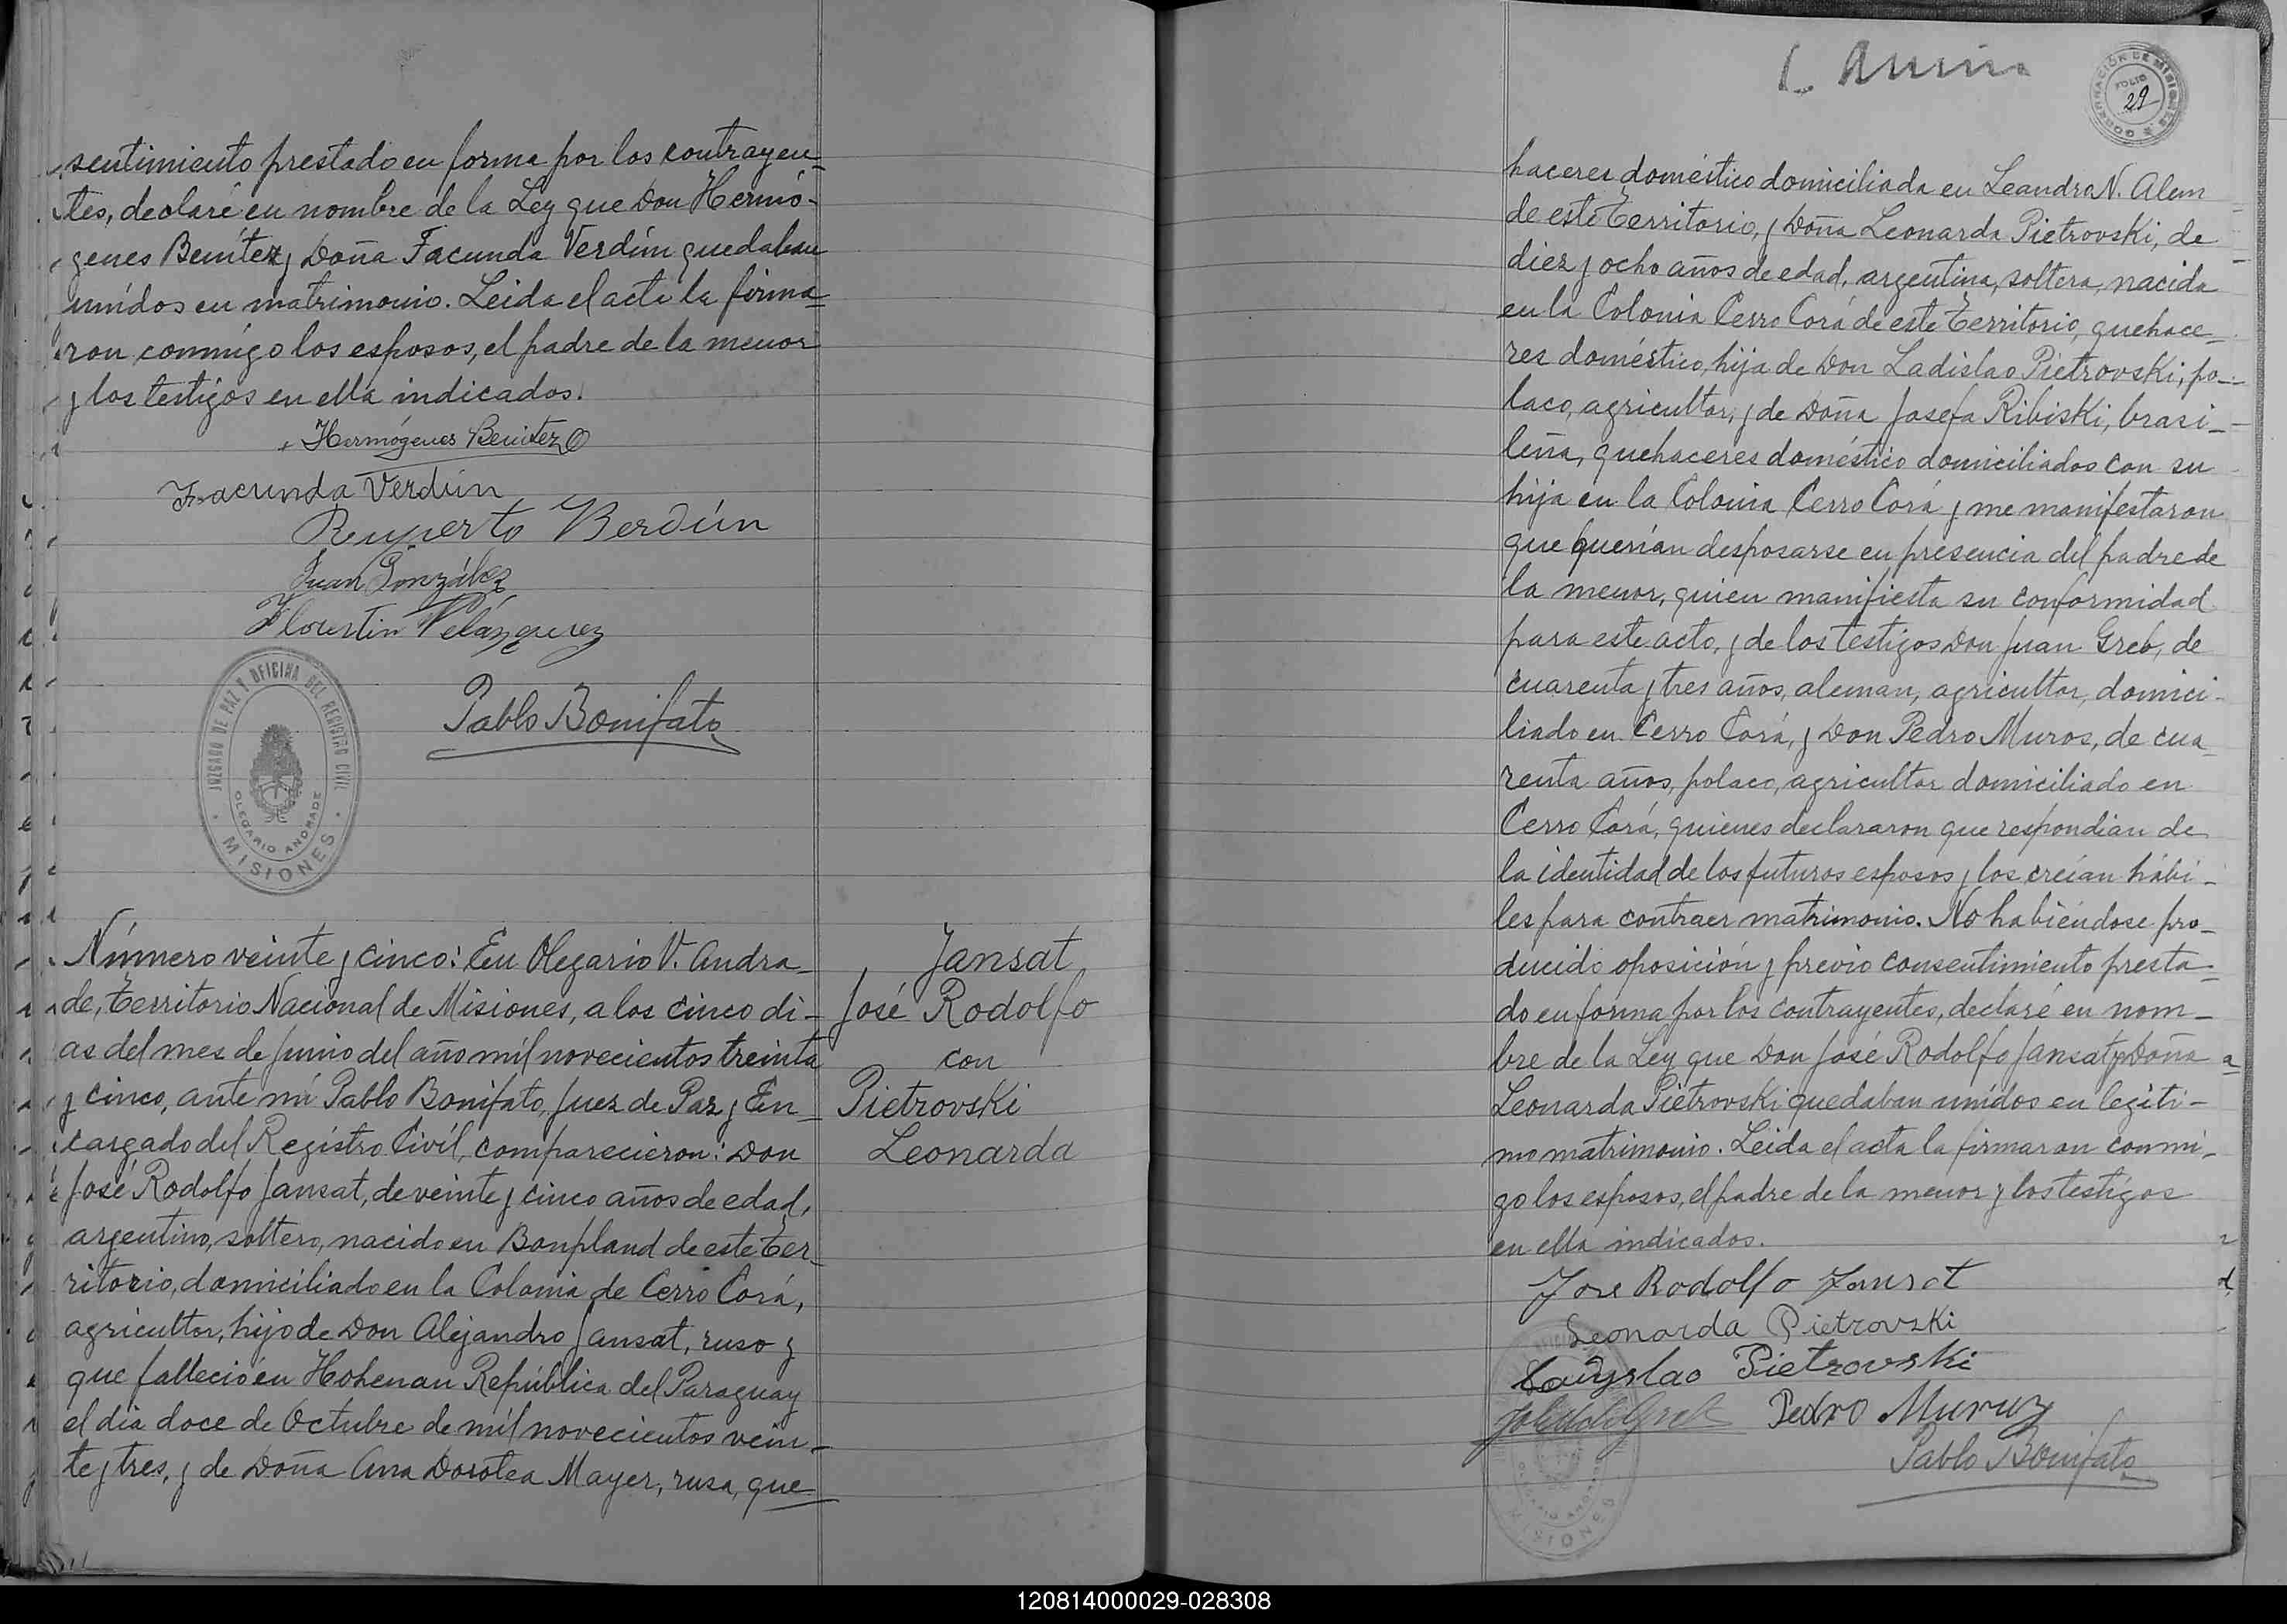 sentimiento prestado en forma por los contrayen-
tes, declaré en nombre de la Ley que Don Hermó-
genes Benítez y Doña Facunda Verdún quedaban
unidos en matrimonio. Leida el acta la firma-
ron conmigo los esposos, el padre de la menor
y los testigos en ella indicados.
Hermógenes Benitez
Facunda Verdún
Ruperto Berdún
Juan González
Florentin Velázquez
JUZGADO DE PAZ Y OFICINA DEL REGISTRO CIVIL
OLEGARIO ANDRADE
MISIONES
Pablo Bonifato
Número veinte y cinco: En Olegario V. Andra-
de, Territorio Nacional de Misiones, a los cinco di-
as del mes de Junio del año mil novecientos treinta
y cinco, ante mí Pablo Bonifato, Juez de Paz y En-
cargado del Registro Civil, comparecieron: Don
José Rodolfo Jansat, de veinte y cinco años de edad,
argentino, soltero, nacido en Bonpland de este Ter-
ritorio, domiciliado en la Colonia de Cerro Corá,
agricultor, hijo de Don Alejandro Jansat, ruso y
que falleció en Hohenau República del Paraguay
el día doce de Octubre de mil novecientos vein-
te y tres, y de Doña Ana Dorotea Mayer, rusa, que-
Jansat
José Rodolfo
con
Pietrovski
Leonarda
GOBERNACIÓN DE MISIONES
FOLIO
29
haceres doméstico domiciliada en Leandro N. Alem
de este Territorio, y Doña Leonarda Pietrovski, de
diez y ocho años de edad, argentina, soltera, nacida
en la Colonia Cerro Corá de este Territorio, quehace-
res doméstico, hija de Don Ladislao Pietrovski, po-
laco, agricultor, y de Doña Josefa Ribiski, brasi-
leña, quehaceres doméstico domiciliados con su
hija en la Colonia Cerro Corá y me manifestaron
que querían desposarse en presencia del padre de
la menor, quien manifiesta su conformidad
para este acto, y de los testigos Don Juan Greb, de
cuarenta y tres años, aleman, agricultor, domici-
liado en Cerro Corá, y Don Pedro Muros, de cua-
renta años, polaco, agricultor domiciliado en
Cerro Corá, quienes declararon que respondían de
la identidad de los futuros esposos y los creían hábi-
les para contraer matrimonio. No habiéndose pro-
ducido oposición y previo consentimiento presta-
do en forma por los contrayentes, declaré en nom-
bre de la Ley que Don José Rodolfo Jansat y Doña
Leonarda Pietrovski quedaban unidos en legíti-
mo matrimonio. Leida el acta la firmaron conmi-
go los esposos, el padre de la menor y los testigos
en ella indicados.
Jose Rodolfo Jansat
Leonarda Pietrovski
Ladyslao Pietrovski
Pedro Muruz
Pablo Bonifato
MISIONES
120814000029-028308